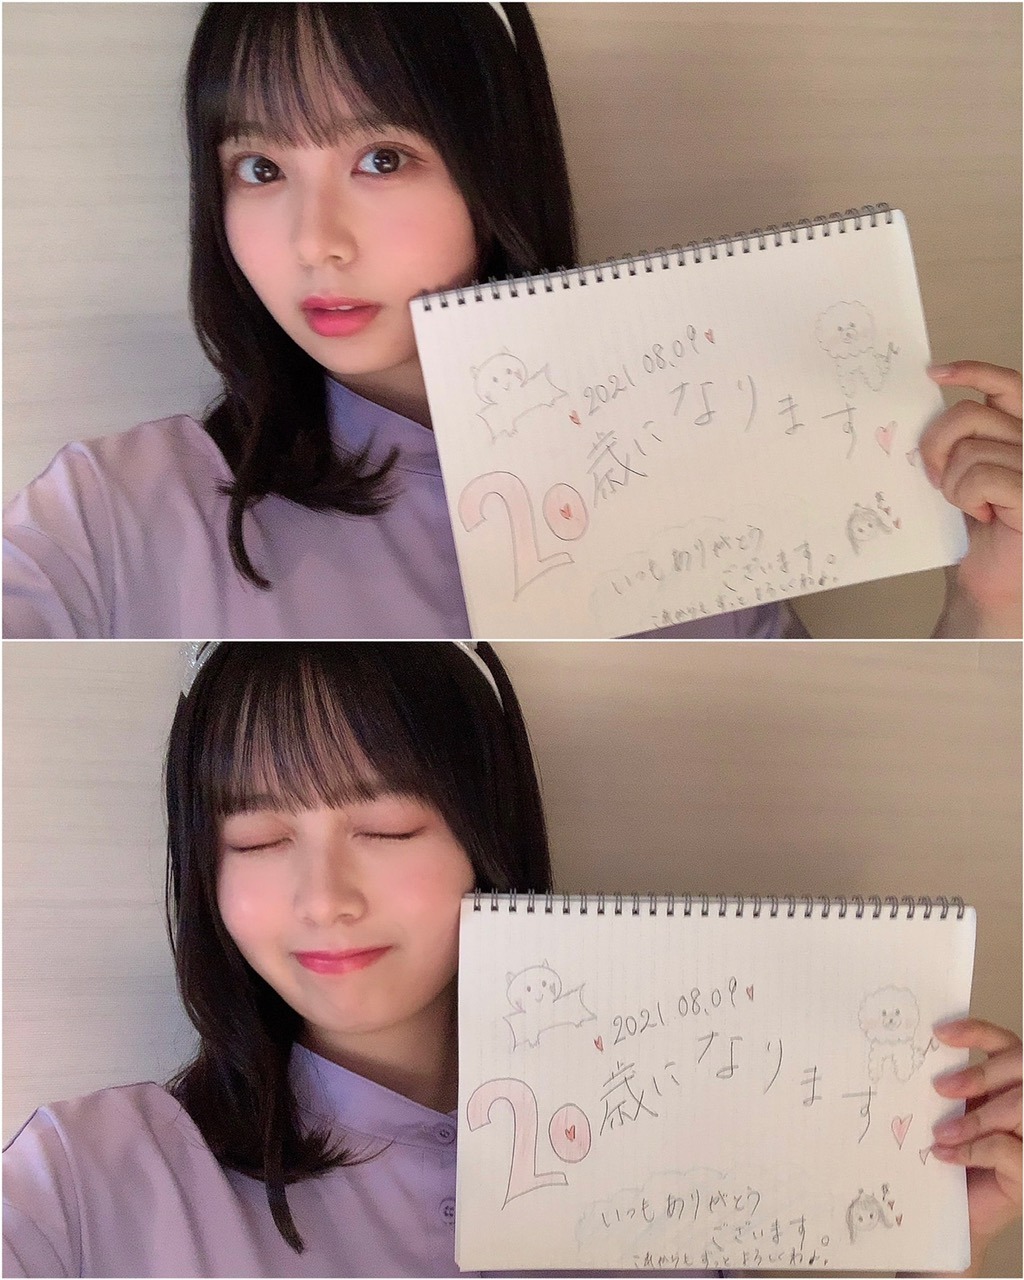 2021.08.09
20歳になります
いつもありがとう
ございます。
これからもずっとよろしくねっ。
2021.08.09
20歳になります
いつもありがとう
ございます。
これからもずっとよろしくねっ。